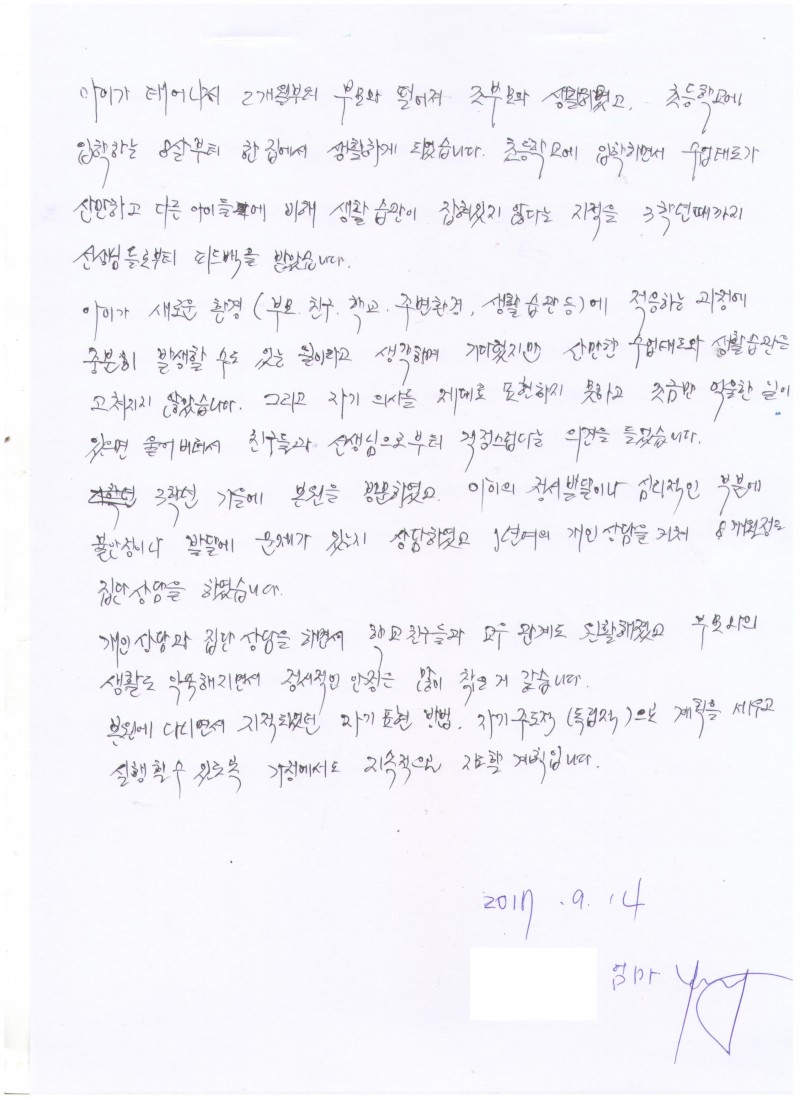 아이가 태어나서 2개월부터 부모와 떨어져 조부모와 생활하였고, 초등학교에
입학하는 8살부터 한 집에서 생활하게 되었습니다. 초등학교에 입학하면서 수업태도가
산만하고 다른 아이들에 비해 생활 습관이 잡혀있지 않다는 지적을 3학년때까지
선생님들로부터 피드백을 받았습니다.
아이가 새로운 환경 (부모. 친구. 학교. 주변환경, 생활 습관 등)에 적응하는 과정에
충분히 발생할 수도 있는 일이라고 생각하며 기다렸지만 산만한 수업태도와 생활습관은
고쳐지지 않았습니다. 그리고 자기 의사를 제대로 표현하지 못하고 조금만 억울한 일이
있으면 울어버려서 친구들과 선생님으로부터 걱정스럽다는 의견을 들었습니다.
3학년 가을에 본원을 방문하였고. 아이의 정서발달이나 심리적인 부분에
불안정이나 발달에 문제가 있는지 상담하였고 1년여의 개인상담을 거쳐 8개월정도
집단상담을 하였습니다.
개인상담과 집단 상담을 하면서 학교 친구들과 교우 관계도 원활해졌고 부모와의
생활도 익숙해지면서 정서적인 안정은 많이 찾은 거 같습니다.
본원에 다니면서 지적되었던 자기 표현 방법, 자기주도적 (독립적)으로 계획을 세우고
실행할 수 있도록 가정에서도 지속적으로 지도할 계획입니다.
2017. 9. 14
엄마